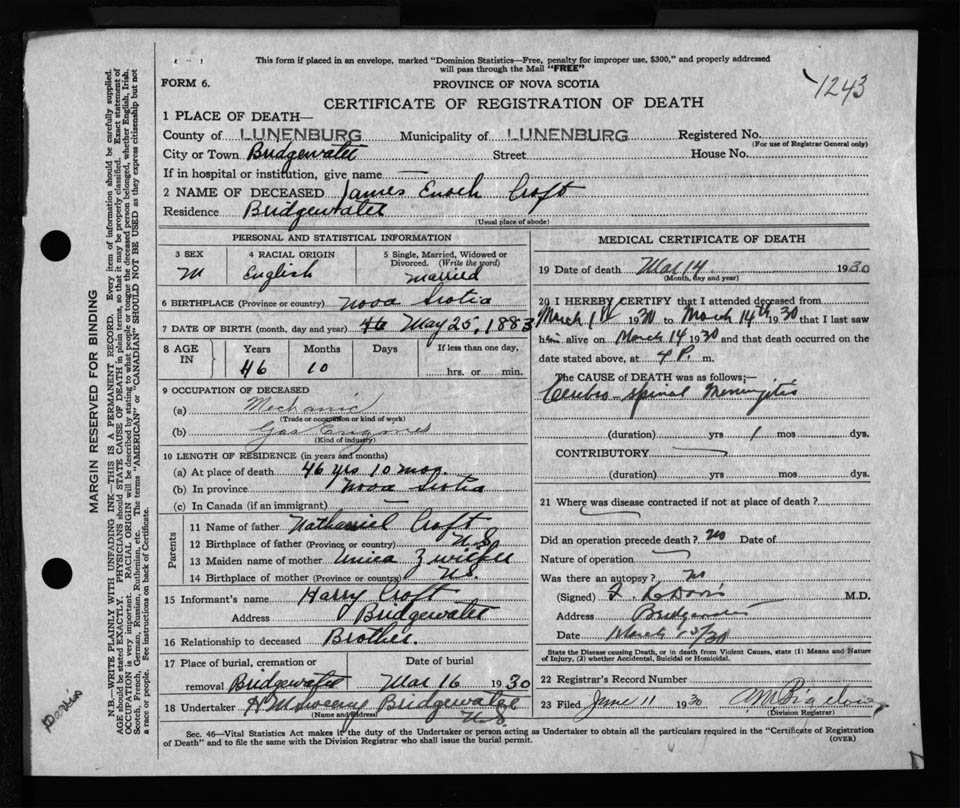 This form if placed in an envelope, marked "Dominion Statistics—Free, penalty for improper use, $300," and properly addressed
will pass through the Mail "FREE"
1243
FORM 6.
PROVINCE OF NOVA SCOTIA
CERTIFICATE OF REGISTRATION OF DEATH
1 PLACE OF DEATH—
County of LUNENBURG Municipality of LUNENBURG Registered No.
(For use of Registrar General only)
City or Town Bridgewater Street House No.
If in hospital or institution, give name —
2 NAME OF DECEASED James Enoch Croft
Residence Bridgewater
(Usual place of abode)
PERSONAL AND STATISTICAL INFORMATION
3 SEX
M
4 RACIAL ORIGIN
English
5 Single, Married, Widowed or
Divorced. (Write the word)
Married
6 BIRTHPLACE (Province or country) Nova Scotia
7 DATE OF BIRTH (month, day and year) 46 May 25, 1883
8 AGE IN
Years Months Days If less than one day,
46 10 hrs. or min.
9 OCCUPATION OF DECEASED
(a) Mechanic
(Trade or occupation or kind of work)
(b) Gas Engines
(Kind of industry)
10 LENGTH OF RESIDENCE (in years and months)
(a) At place of death 46 yrs 10 mos.
(b) In province Nova Scotia
(c) In Canada (if an immigrant) —
Parents
11 Name of father Nathaniel Croft
12 Birthplace of father (Province or country) N.S.
13 Maiden name of mother
14 Birthplace of mother (Province or country) N.S.
15 Informant's name Harry Croft
Address Bridgewater
16 Relationship to deceased Brother.
17 Place of burial, cremation or Date of burial
removal Bridgewater Mar 16 1930
18 Undertaker Bridgewater
(Name and address) N.S.
MEDICAL CERTIFICATE OF DEATH
19 Date of death Mar 14 1930
(Month, day and year)
20 I HEREBY CERTIFY that I attended deceased from
March 1st 1930 to March 14th 1930 that I last saw
him alive on March 14 1930 and that death occurred on the
date stated above, at 4 P. m.
The CAUSE of DEATH was as follows;—
Cerebro-spinal Meningitis
(duration) yrs 1 mos dys.
CONTRIBUTORY
(duration) yrs mos dys.
21 Where was disease contracted if not at place of death?
Did an operation precede death? no Date of
Nature of operation
Was there an autopsy? no
(Signed) M.D.
Address Bridgewater
Date March 15/30
State the Disease causing Death, or in death from Violent Causes, state (1) Means and Nature
of Injury, (2) whether Accidental, Suicidal or Homicidal.
22 Registrar's Record Number
23 Filed June 11 1930
(Division Registrar)
Sec. 46—Vital Statistics Act makes it the duty of the Undertaker or person acting as Undertaker to obtain all the particulars required in the "Certificate of Registration
of Death" and to file the same with the Division Registrar who shall issue the burial permit. (OVER)
MARGIN RESERVED FOR BINDING
N.B.—WRITE PLAINLY WITH UNFADING INK—THIS IS A PERMANENT RECORD. Every item of information should be carefully supplied.
AGE should be stated EXACTLY. PHYSICIANS should STATE CAUSE OF DEATH in plain terms, so that it may be properly classified. Exact statement of
OCCUPATION is very important. RACIAL ORIGIN will be described by stating to what people or tongue the deceased person belonged, whether English, Irish,
Scotch, French, German, Russian, Ruthenian, etc. The terms "AMERICAN" or "CANADIAN" SHOULD NOT BE USED as they express citizenship but not
a race or people. See instructions on back of Certificate.